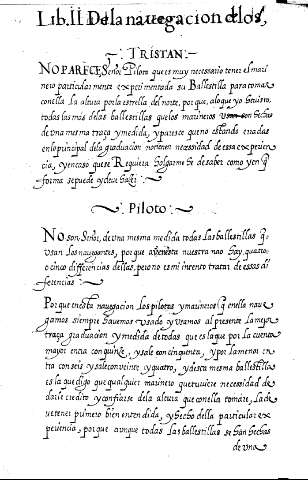 Lib.II De la navegacion de los,
TRISTAN.
NO PARECE Señor Piloto que es muy necessario tener el mari
nero particularmente experimentada su Ballestilla para tomar
con ella la altura por la estrella del norte, por que, a lo que yo he visto,
todas las mas delas ballestillas que los marineros usan son hechas
de vna mesma traça y medida, y parece que no estando erradas
en lo principal dela graduacion no tienen necessidad de essa experien
cia, y en caso que se Requiera holgarme he de saber como y en q̃
forma se puede y deve hazer
Piloto:
NO son Señor, de vna mesma medida todas las ballestillas q̃
vsan los navegantes, por que
nuestra nao hay quatro
o cinco differencias dellas, pero no es mi intento tratar de essas di
ferencias
Por que
navegacion los pilotos y marineros q̃ en ella nave
gamos siempre havemos vsado y vsamos al presente la mejor
traça graduacion y medida de todas que es la que por la cuenta
mayor entra con quinze, y sale con cinquenta, y por la menor en
tra con seis y sale con veinte y quatro, y desta mesma ballestilla
es la que digo que qualquier marinero que tuviere necessidad de
darle credito y confiarse dela altura que con ella tomare, la de
ve tener primero bien entendida, y hecho della particular ex
periencia, por que aunque todas las ballestillas se han hechas
de vna